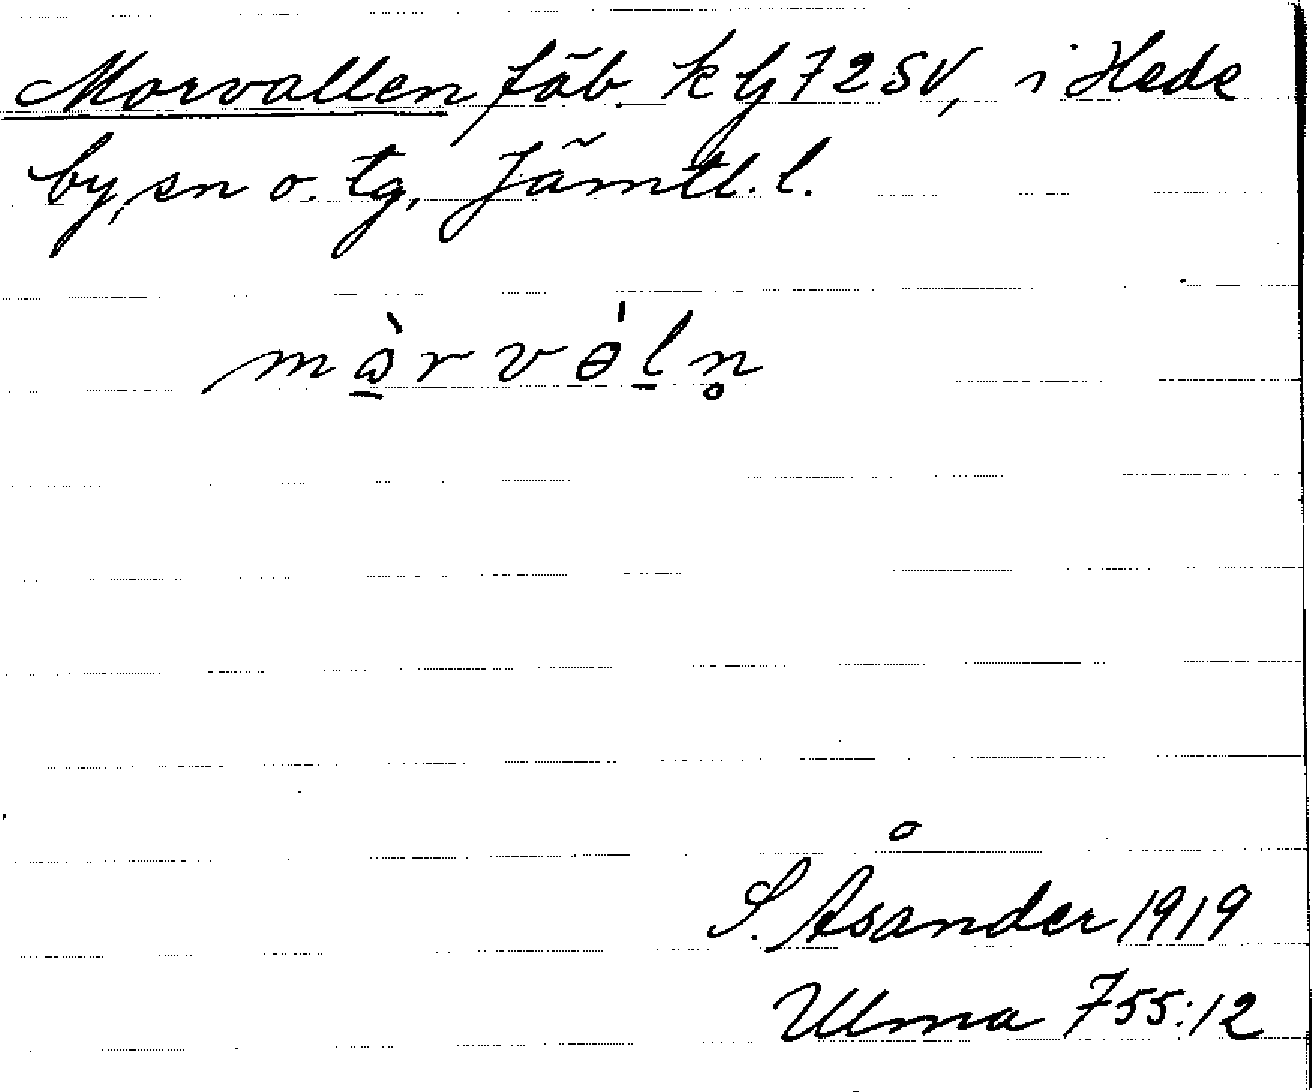 Morvallen fäb. k bj 72 SV, i Hede
by, sn o. tg, Jämtl. l.
mɷ̀rvɵ́ln̥
S. Åsander 1919
Ulma 755:12